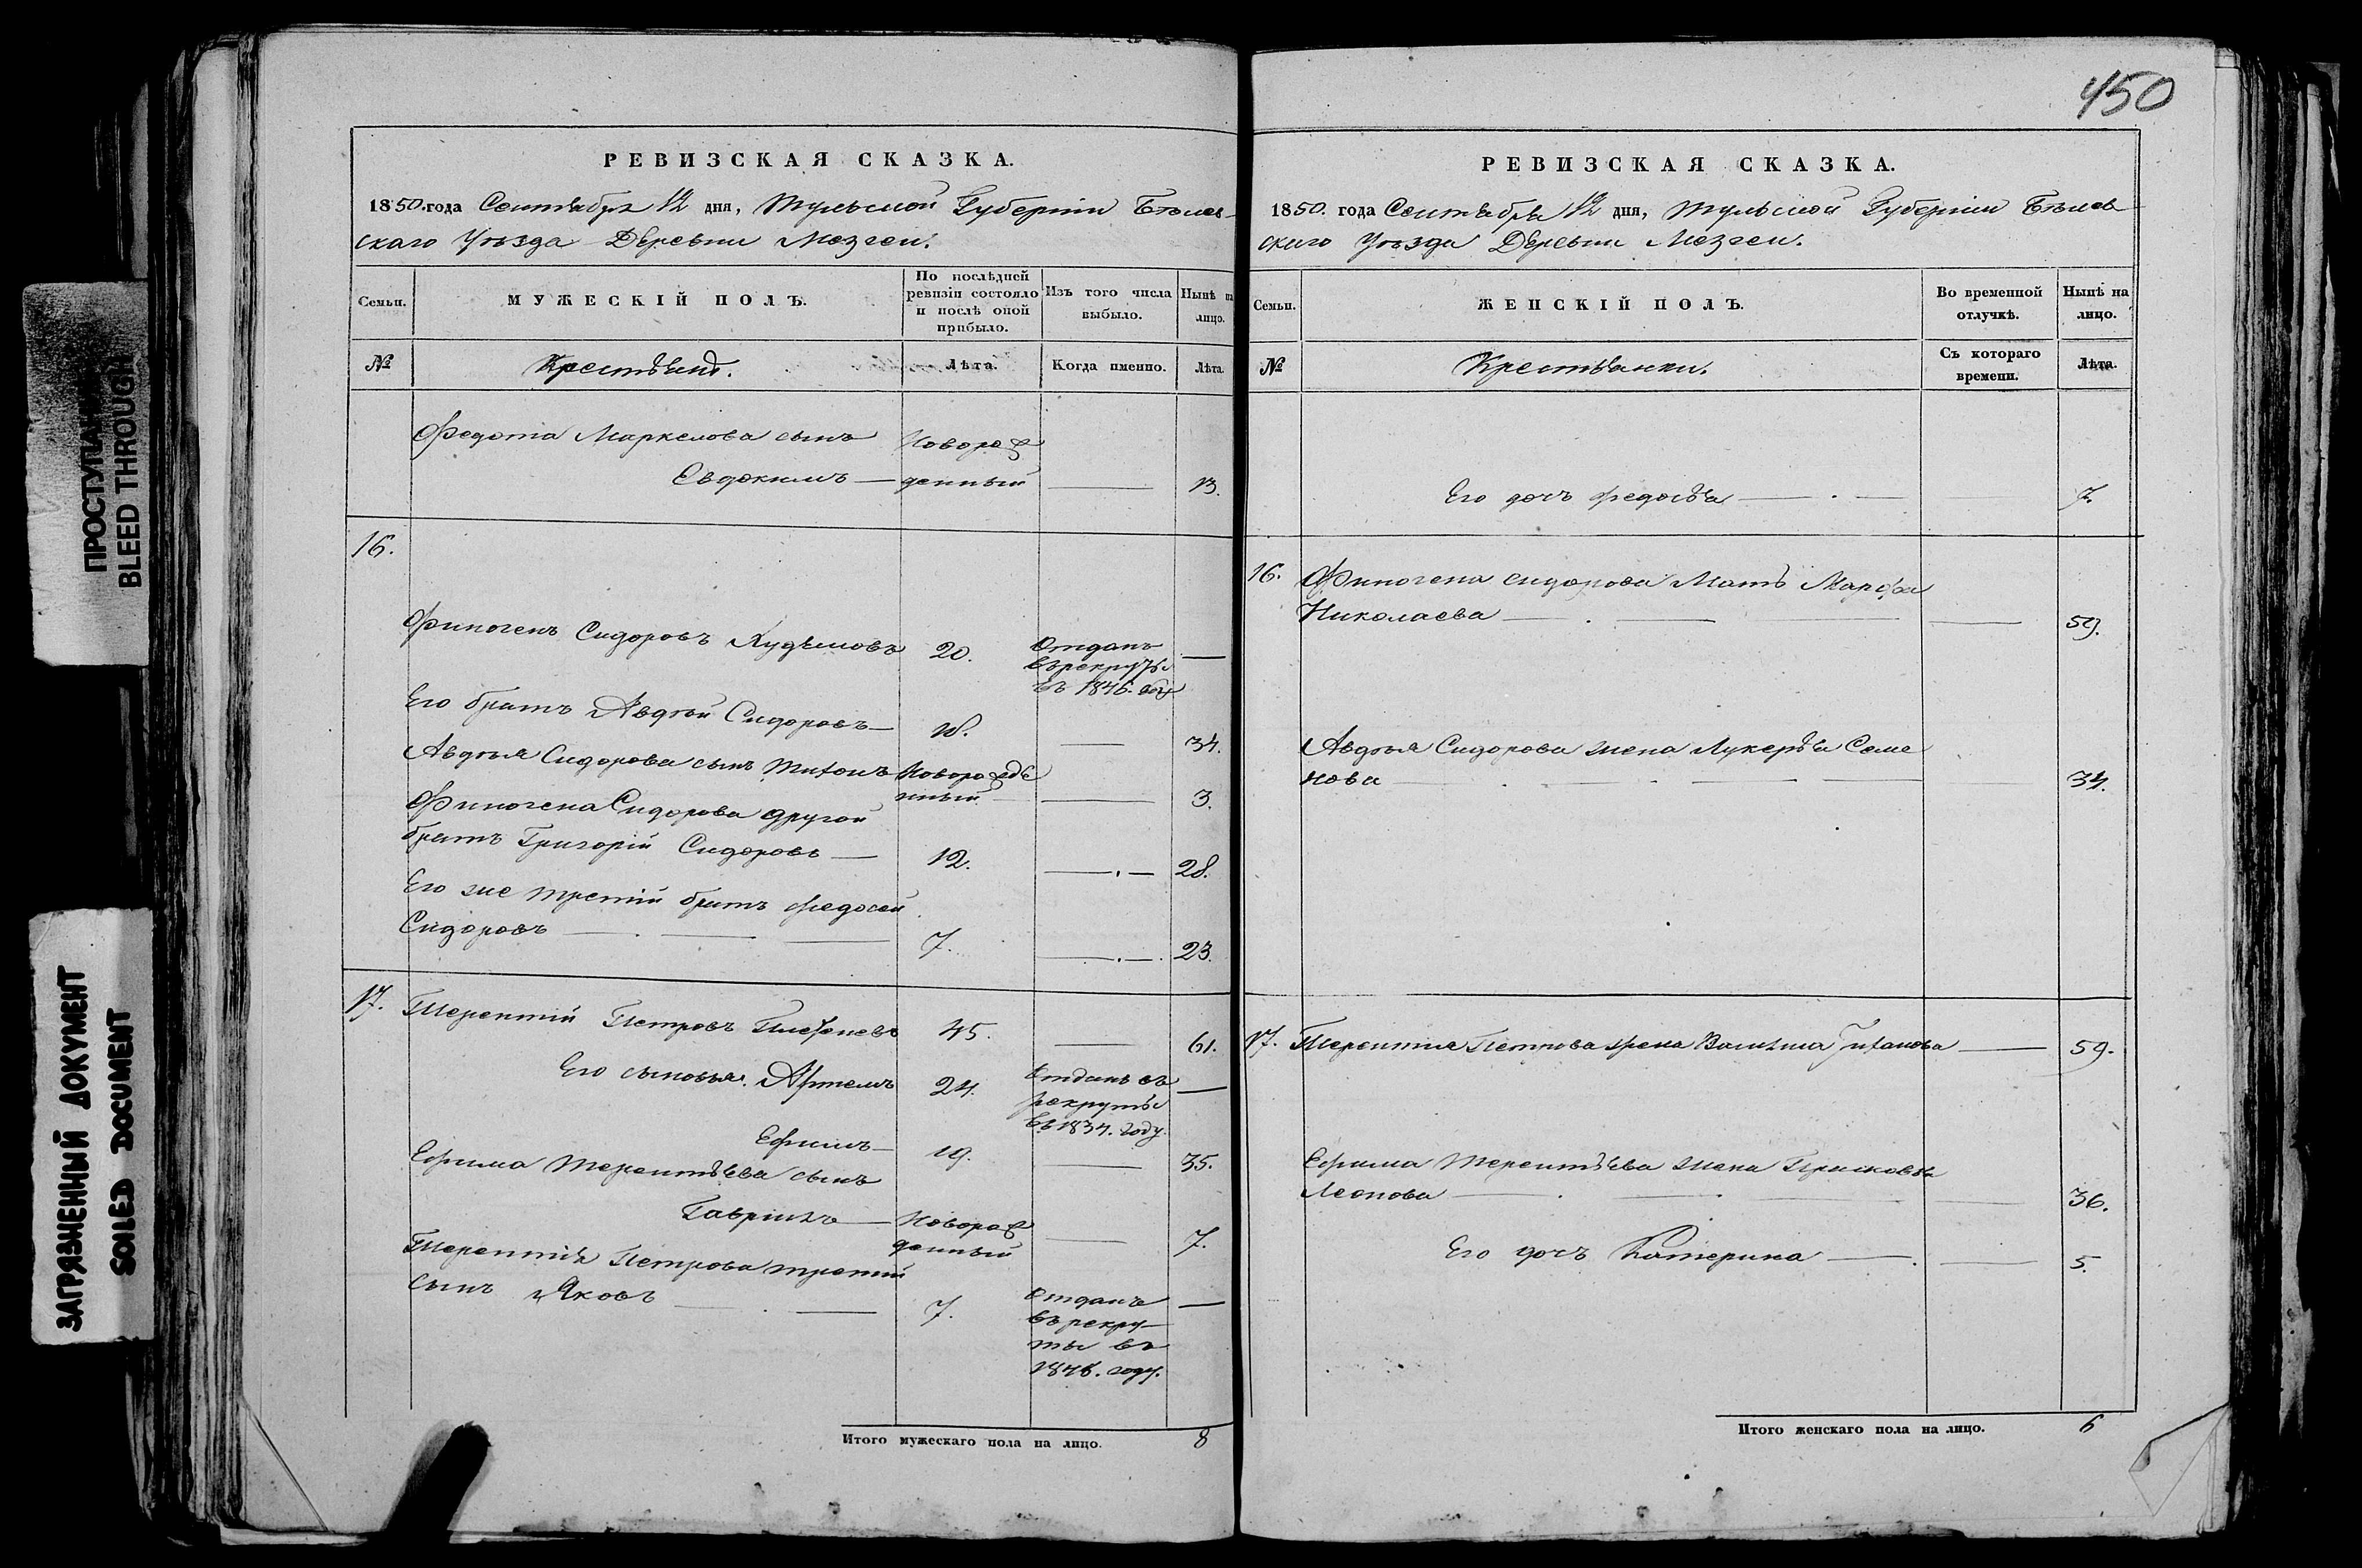 450
РЕВИЗСКАЯ СКАЗКА.
1850. года Сентября 12 дня, Тульской Губерніи Бѣлев-
скаго Уѣзда Деревни Мезген.
Семьи.
МУЖЕСКІЙ ПОЛЪ.
По послѣдней
ревизіи состояло
и послѣ оной
прибыло.
Изъ того числа
выбыло.
Нынѣ на
лицо.
№
Крестьянъ.
Лѣта.
Когда именно.
Лѣта.
Федота Маркелова сынъ
Евдокимъ — новорож
денный — 13.
16.
Финогенъ Сидоровъ 20. Отданъ
въ рекруты
въ 1846. году —
Его братъ Авдѣй Сидоровъ — 18. — 34.
Авдѣя Сидорова сынъ Тихонъ новорожде
нный — 3.
Финогена Сидорова другой
братъ Григорій Сидоровъ — 12. — 28.
Его же третій братъ Федосей
Сидоровъ — 7. — 23.
17. Терентій Петровъ 45. — 61.
Его сыновья. Артемъ 24. Отданъ въ
рекруты
въ 1834. году. —
Ефимъ — 19. — 35.
Ефима Терентьева сынъ
Гаврилъ — новорож
денный — 7.
Терентія Петрова третій
сынъ Яковъ — 7. Отданъ
въ рекру-
ты въ
году. —
Итого мужескаго пола на лицо. 8
РЕВИЗСКАЯ СКАЗКА.
1850. года Сентября 12 дня, Тульской Губерніи Бѣлев
скаго Уѣзда Деревни Мезген.
Семьи.
ЖЕНСКІЙ ПОЛЪ.
Во временной
отлучкѣ.
Нынѣ на
лицо.
№
Крестьянки.
Съ котораго
времени.
Лѣта.
Его дочь Федосья — 7.
16. Финогена Сидорова Мать Марфа
Николаева — 59.
Авдѣя Сидорова жена Лукерья Семе
нова — 34.
17. Терентія Петрова жена Василиса Тиханова — 59.
Ефима Терентьева жена Прасковья
Леонова — 36.
Его дочь Катерина — 5.
Итого женскаго пола на лицо. 6
ПРОСТУПАНИЕ
BLEED THROUGH
ЗАГРЯЗНЕННЫЙ ДОКУМЕНТ
SOILED DOCUMENT